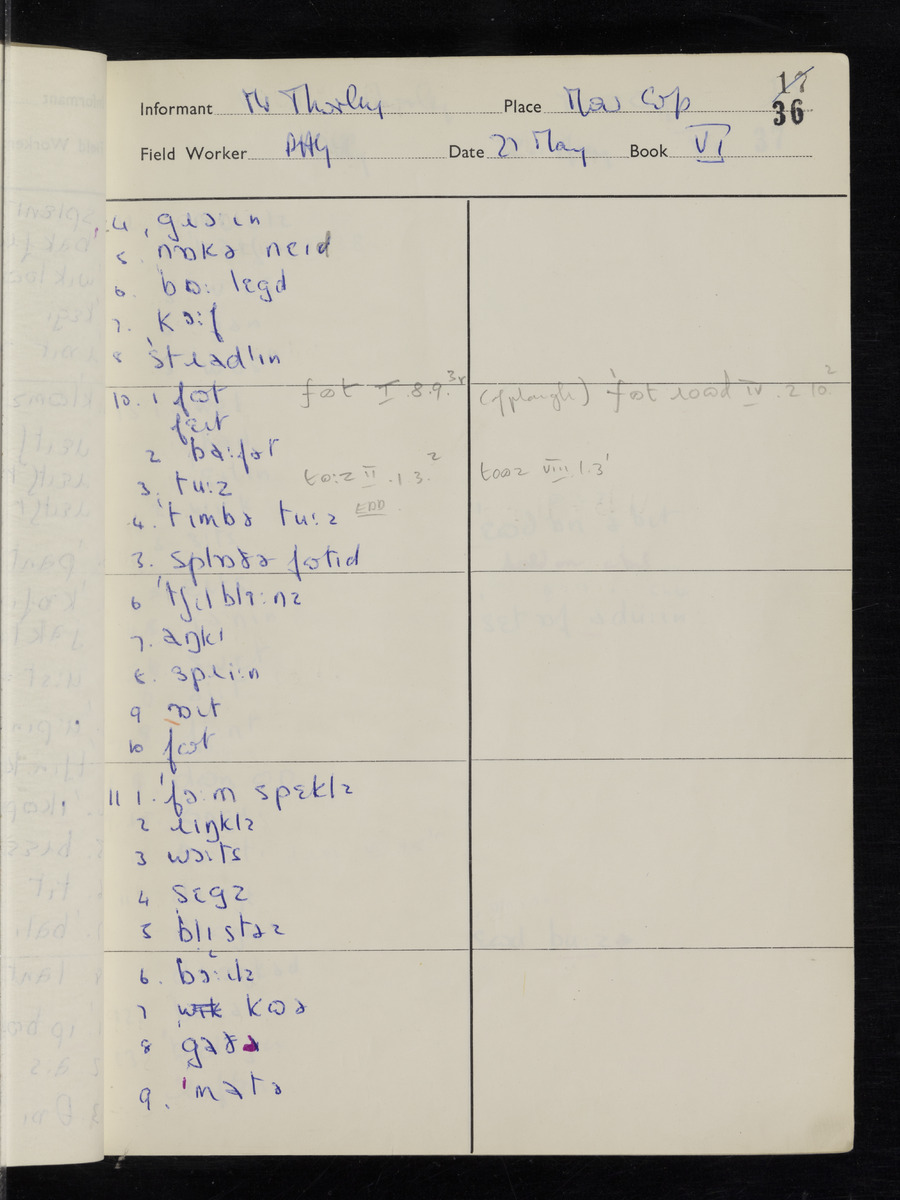 17
Informant Mr Thorley Place Mow Cop 36
Field Worker PHG Date 21 May Book VI
4. gɪəɪn
5. nɒkə neɪd
6. bɒː lɛgd
7. kɔːf
8. ˈstɪədlɪn
10. 1 fɷt fɷt I.8.9. 3r (of plough) ˈfɷt ɹoəd IV.2.10.2
fɛɪt
2 baːfɷt
3. tuːz toːz II.1.3.2 toəz VIII.1.3
4. ˈtɪmbə tuːz EDD.
3. splɒɪə fɷtɪd
6 ˈtʃɪlbleːnz
7. aŋkɪ
8. spɹɪːn
9
10 fɷt
11 1. ˈfəːn spɛklz
2 ɹɪŋklz
3 wɔːts
4 sɛgz
5 ˈblɪstəz
6. bɔːɪlz
7 kɷə
8
9. ˈmatə